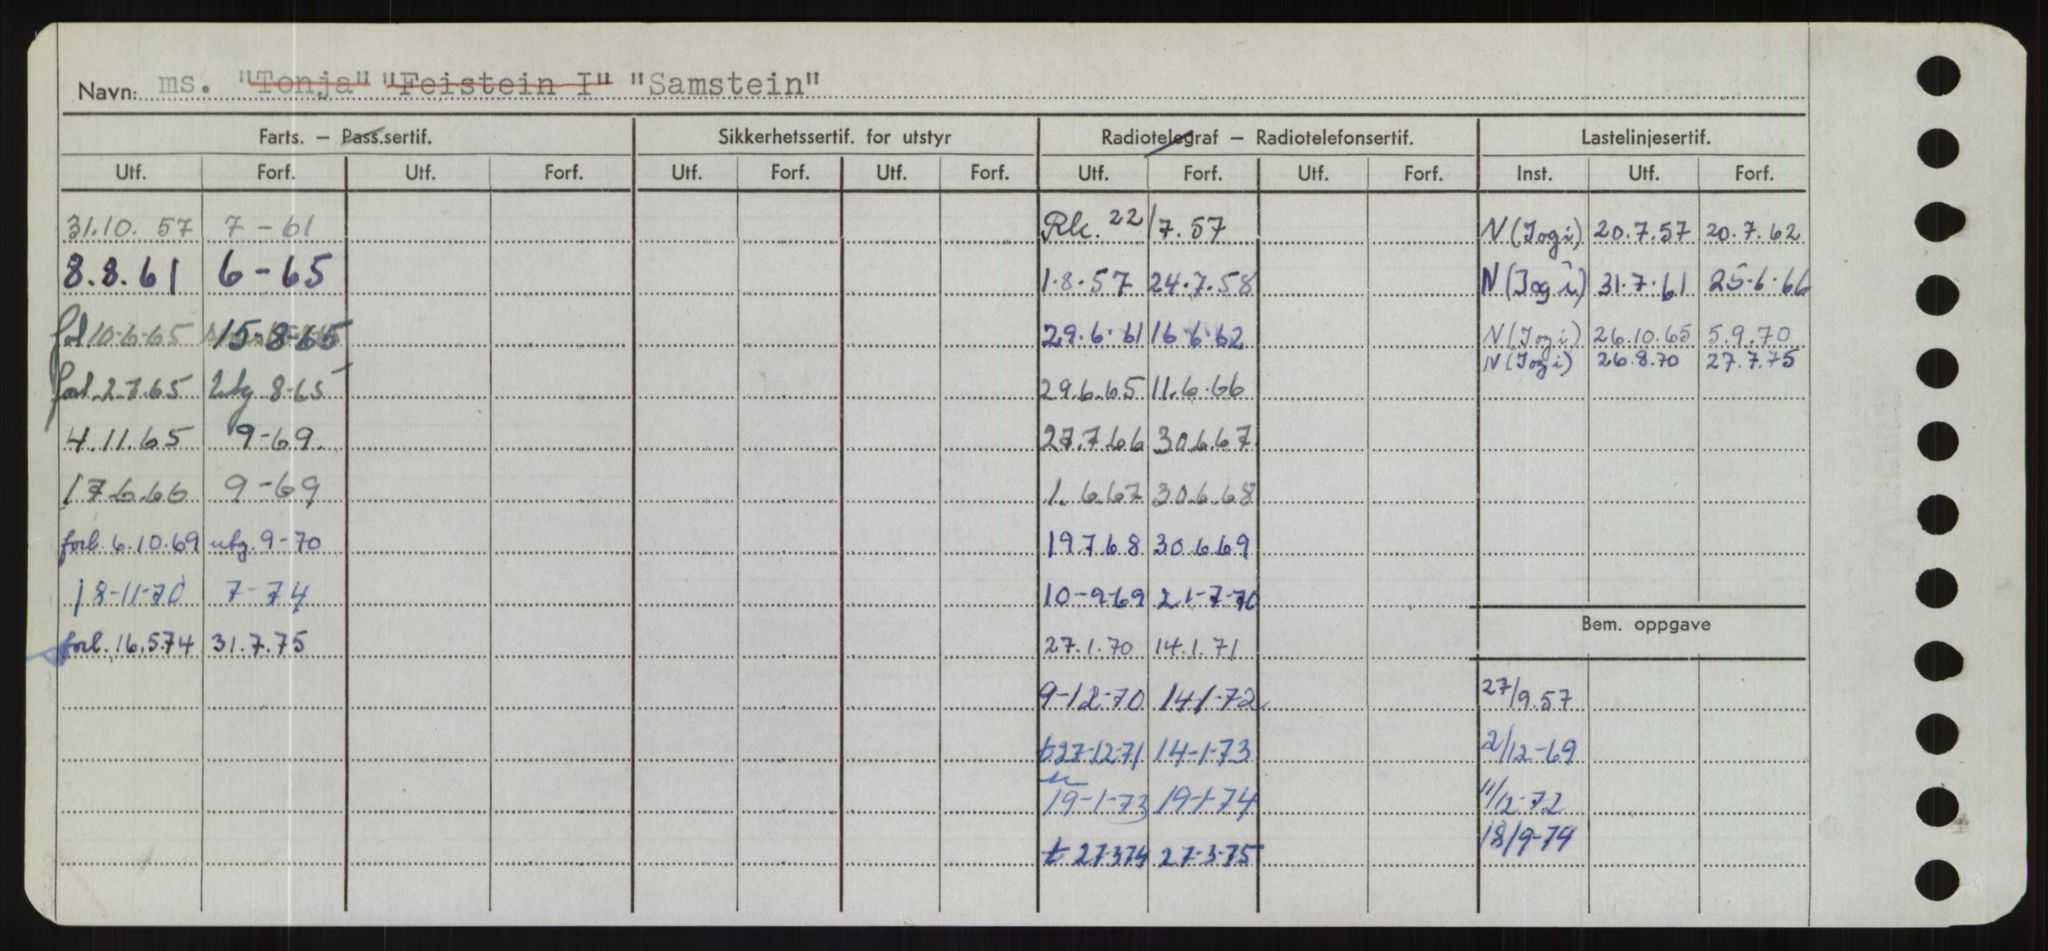 Navn: ms. "Tonja" "Feistein I" "Samstein"
Farts. — Pass.sertif. Sikkerhetssertif. for utstyr Radiotelegraf — Radiotelefonsertif. Lastelinjesertif.
Utf. Forf. Utf. Forf. Utf. Forf. Utf. Forf. Utf. Forf. Utf. Forf. Inst. Utf. Forf.
31.10. 57 7 - 61 Rk. 22/7.57 N (Jogi) 20.7.57 20.7.62
8.8.61 6-65 1.8.57 24.7.58 N (Jogi) 31.7.61 25.6.66
10-6-65 15-8-65 29.6.61 16.6.62 N (Jogi) 26.10.65 5.9.70
N (Jogi) 26.8.70 27.7.75
forl. 2.7.65 utg 8-65 29.6.65 11.6.66
4.11.65 9-69. 27.7.66 30.6.67
17.6.66 9-69 1.6.67 30.6.68
forl. 6.10.69 utg. 9-70 19.7.68 30.6.69
18-11-70 7-74 10-9-69 21-7-70
Bem. oppgave
forl. 16.5.74 31.7.75 27.1.70 14.1.71
9-12-70 14/1-72 27/9.57
t 27-12-71 14-1-73 2/12-69
19-1-73 19-1-74 11/12-72
18/9-74
t 27.3.74 27-3-75